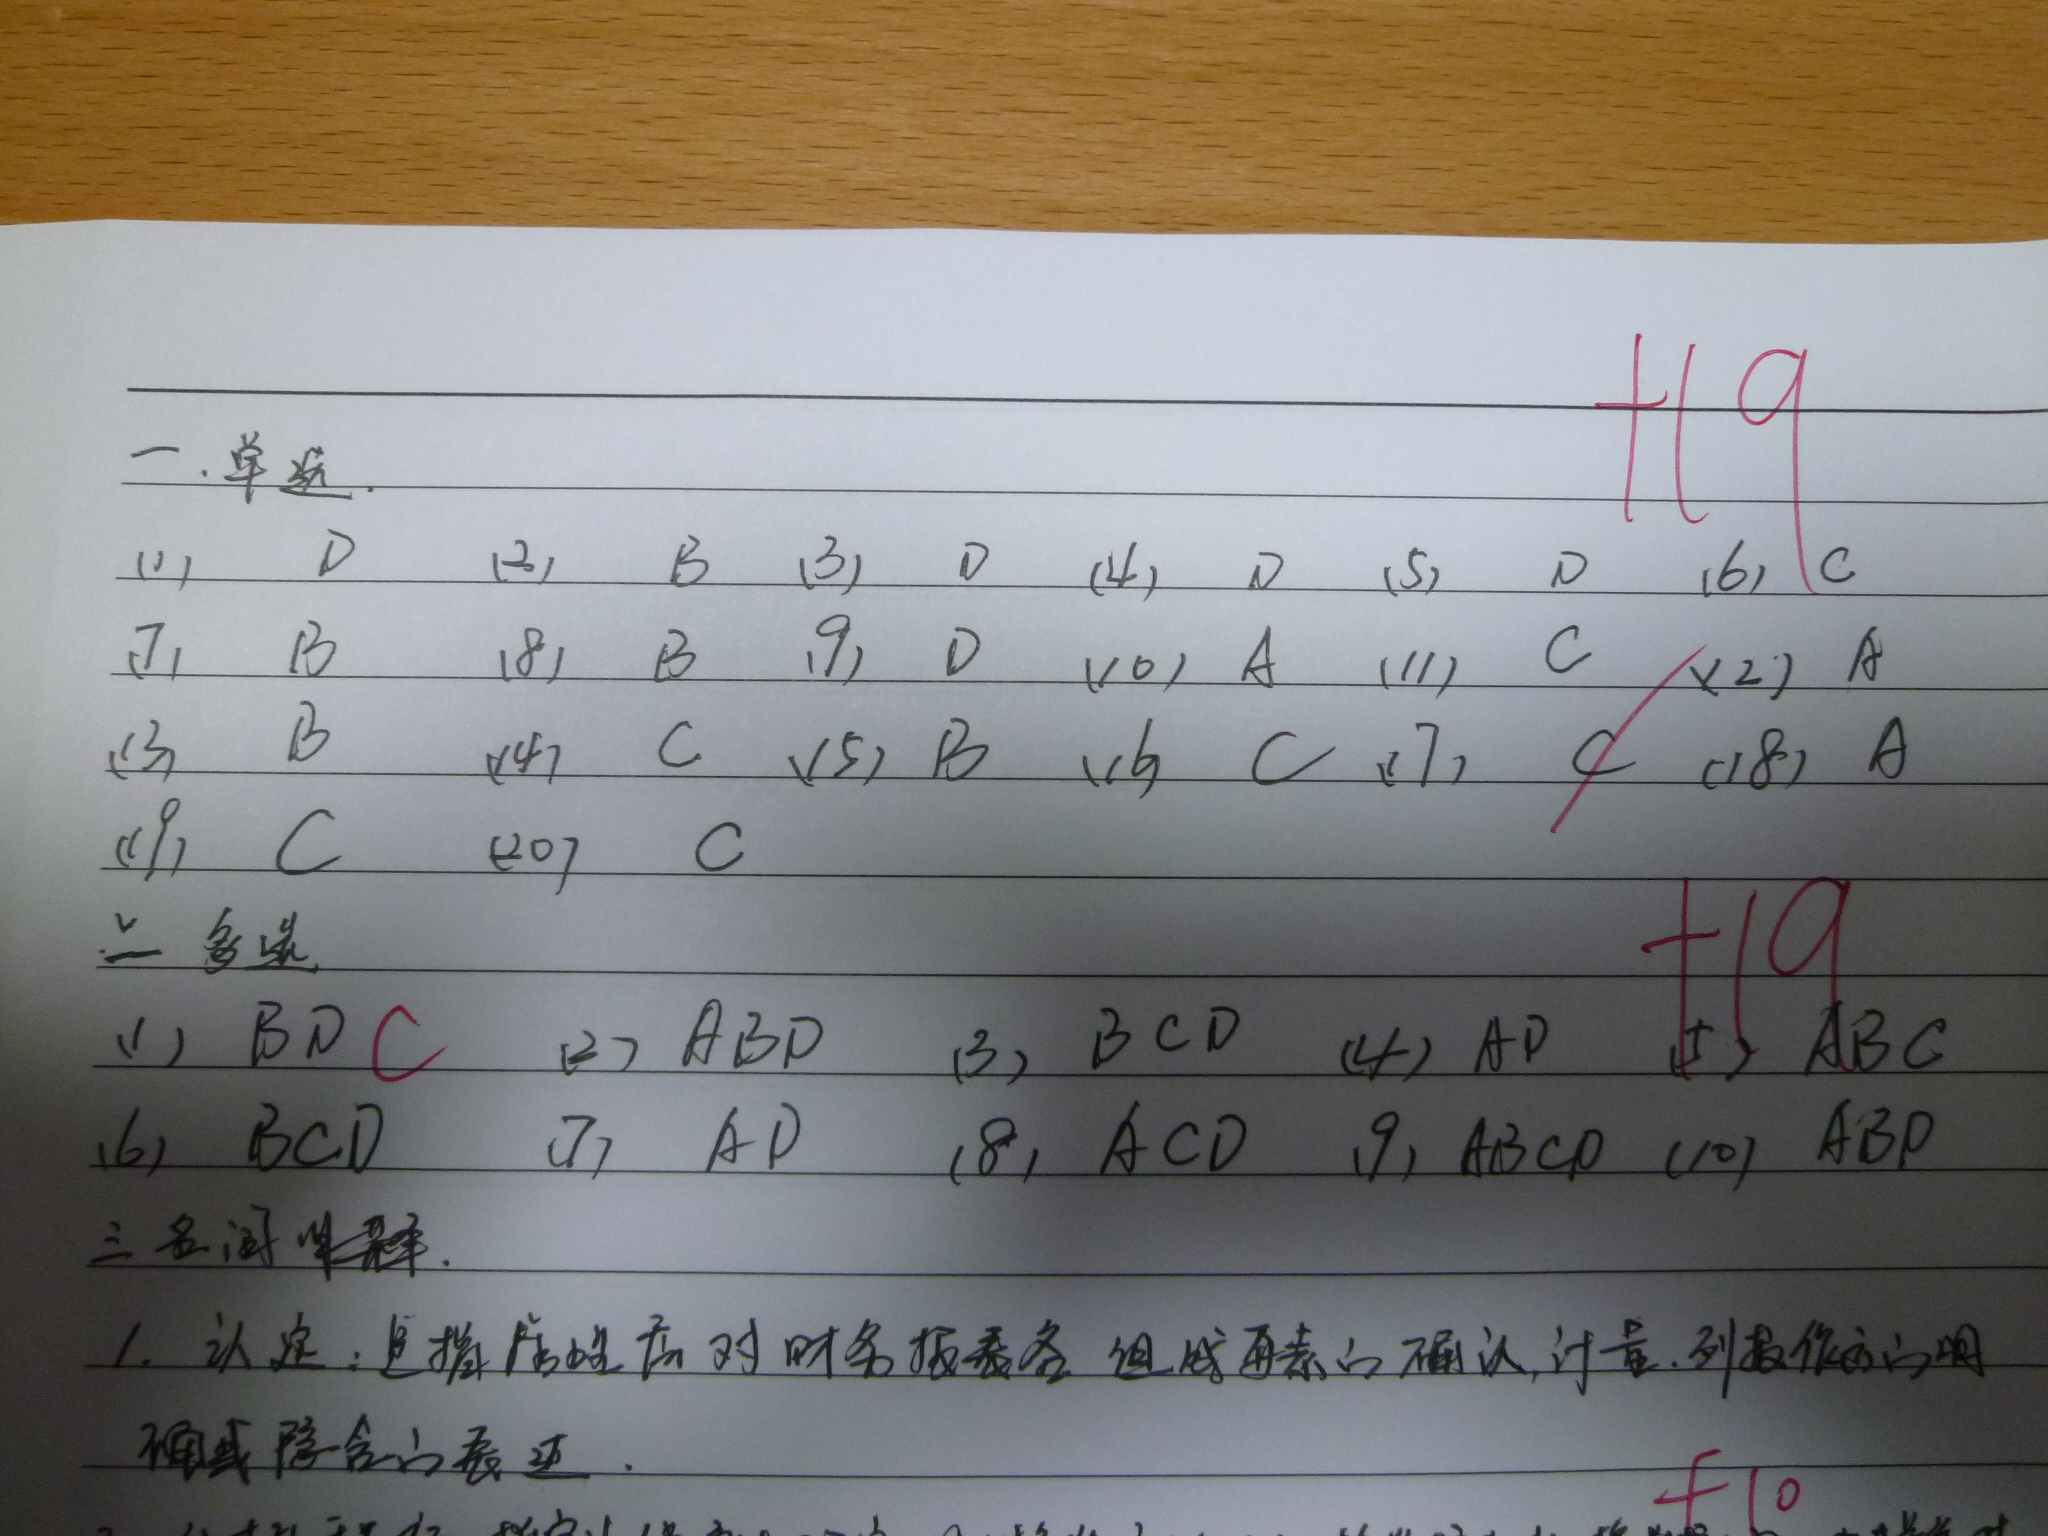 +19
一.单选.
(1) D (2) B (3) D (4) D (5) D (6) C
(7) B (8) B (9) D (10) A (11) C (12) A
(13) B (14) C (15) B (16) C (17) C (18) A
(19) C (20) C
二 多选
+19
(1) BD C (2) ABD (3) BCD (4) AD (5) ABC
(6) BCD (7) AD (8) ACD (9) ABCD (10) ABD
三 名词解释.
1. 认定:是指 对财务报表各组成要素的确认,计量.列报作出的明
确或隐含的表述.
+10